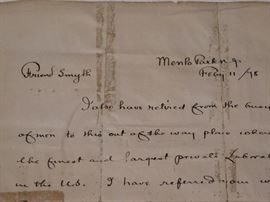 Menlo Park N.J.
Feby 11/78
Friend Smyth
I also have retired from the
of men to this out of the way place where
the finest and largest private Laborat
in the U.S. I have referred your